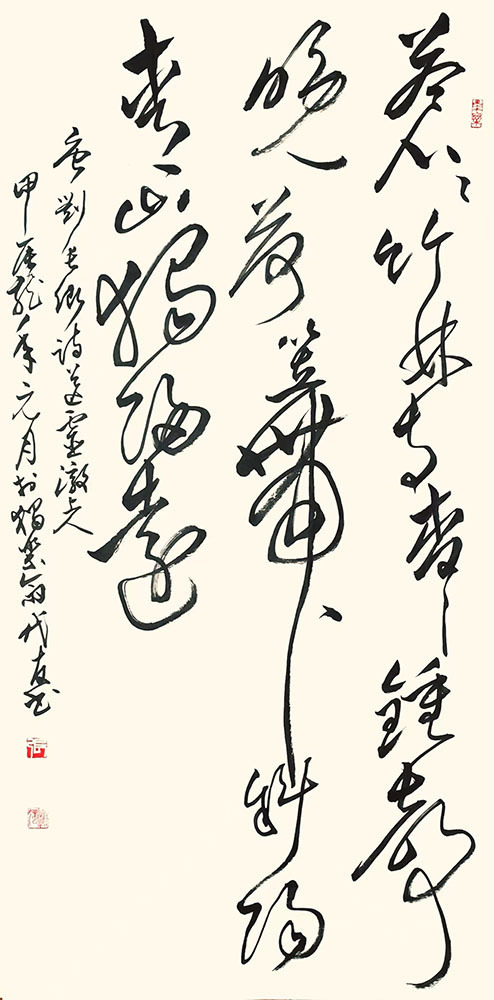 蒼々竹林寺杳々鍾聲
晚荷笠帶斜陽
青山獨歸遠
唐劉長卿詩送靈澈上人
甲辰龍年元月於